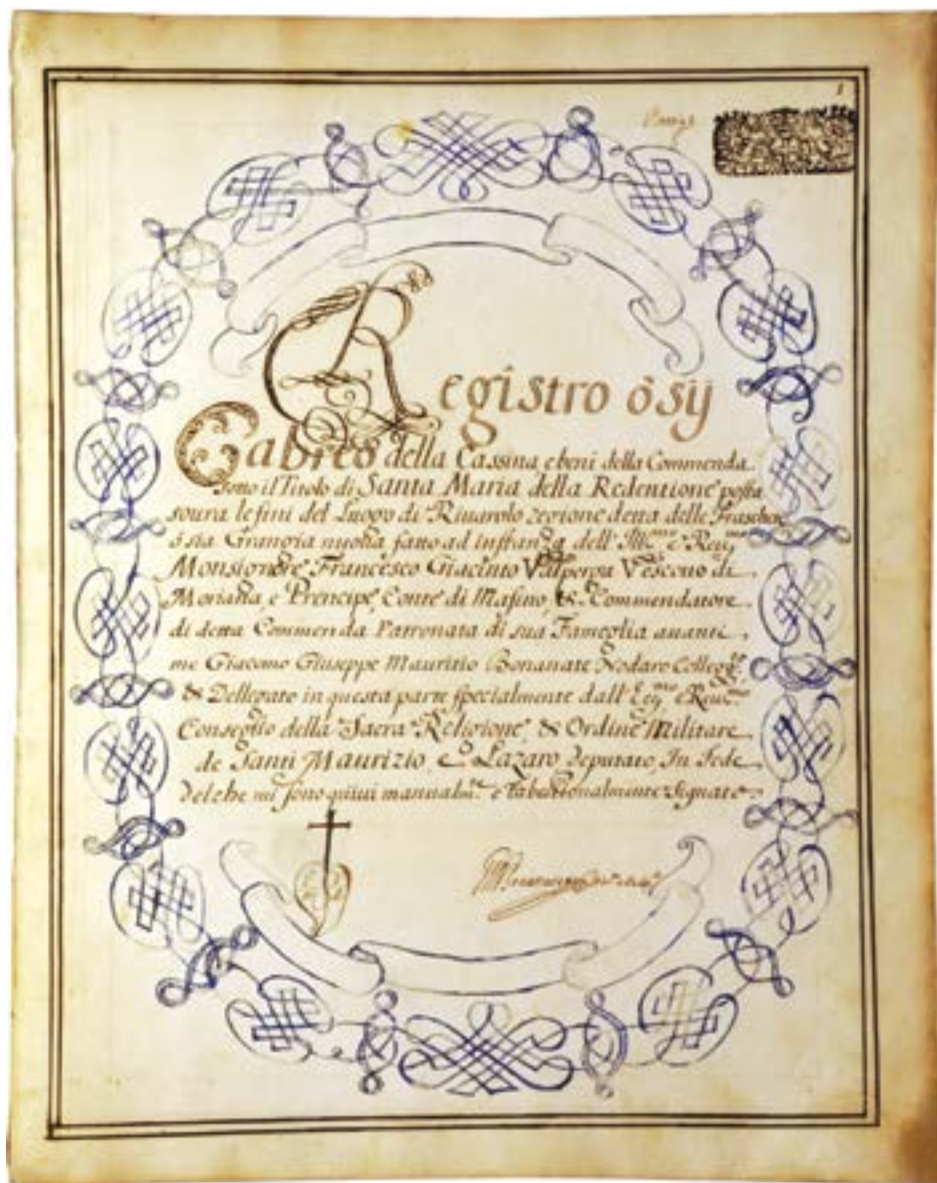 1
Registro ò sij
Cabreo della Cassina e beni della Commenda
sotto il Titolo di Santa Maria della Redentione posta
soura le fini del Luogo di Riuarolo regione detta delle Frasche
ò sia Grangia nuoua fatto ad instanza dell' Ill.mo e Reu.mo
Monsignore Francesco Giacinto Valperga Vescouo di
Moriana, e Prencipe, Conte di Masino, & Commendatore
di detta Commenda Patronata di sua Fameglia auanti
me Giacomo Giuseppe Mauritio Bonanate Nodaro Colleg.
& Dellegato in questa parte specialmente dall' Ecc.mo e Reu.mo
Conseglio della Sacra Religione, & Ordine Militare
de Santi Maurizio, e Lazaro deputato, In Fede
delche mi sono quiui manualm.te e tabellionalmente signato